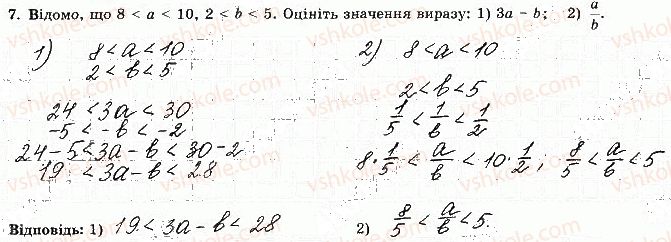 7. Відомо, що 8 < a < 10, 2 < b < 5. Оцініть значення виразу: 1) 3a − b; 2) a/b.
1) 8 < a < 10
2 < b < 5
24 < 3a < 30
-5 < -b < -2
24-5 < 3a-b < 30-2
19 < 3a-b < 28
2) 8 < a < 10
2 < b < 5
1/5 < 1/b < 1/2
8·1/5 < a/b < 10·1/2; 8/5 < a/b < 5
Відповідь: 1) 19 < 3a-b < 28 2) 8/5 < a/b < 5.